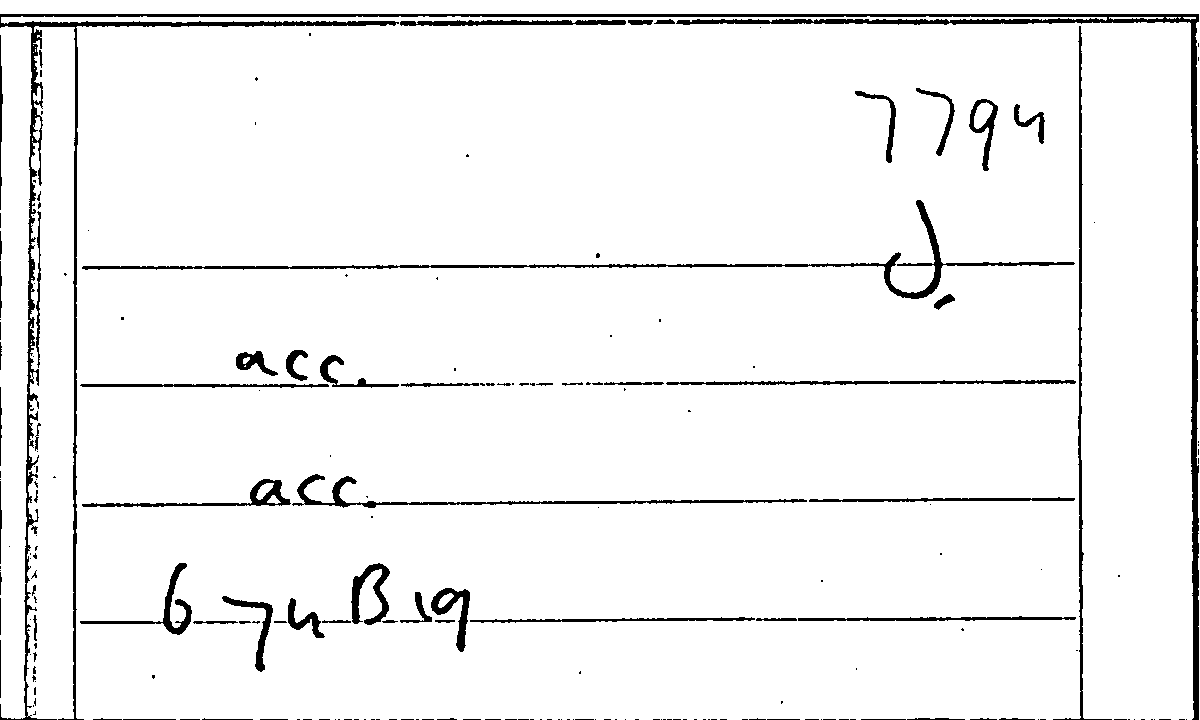 7794
J.
acc.
acc.
674B19